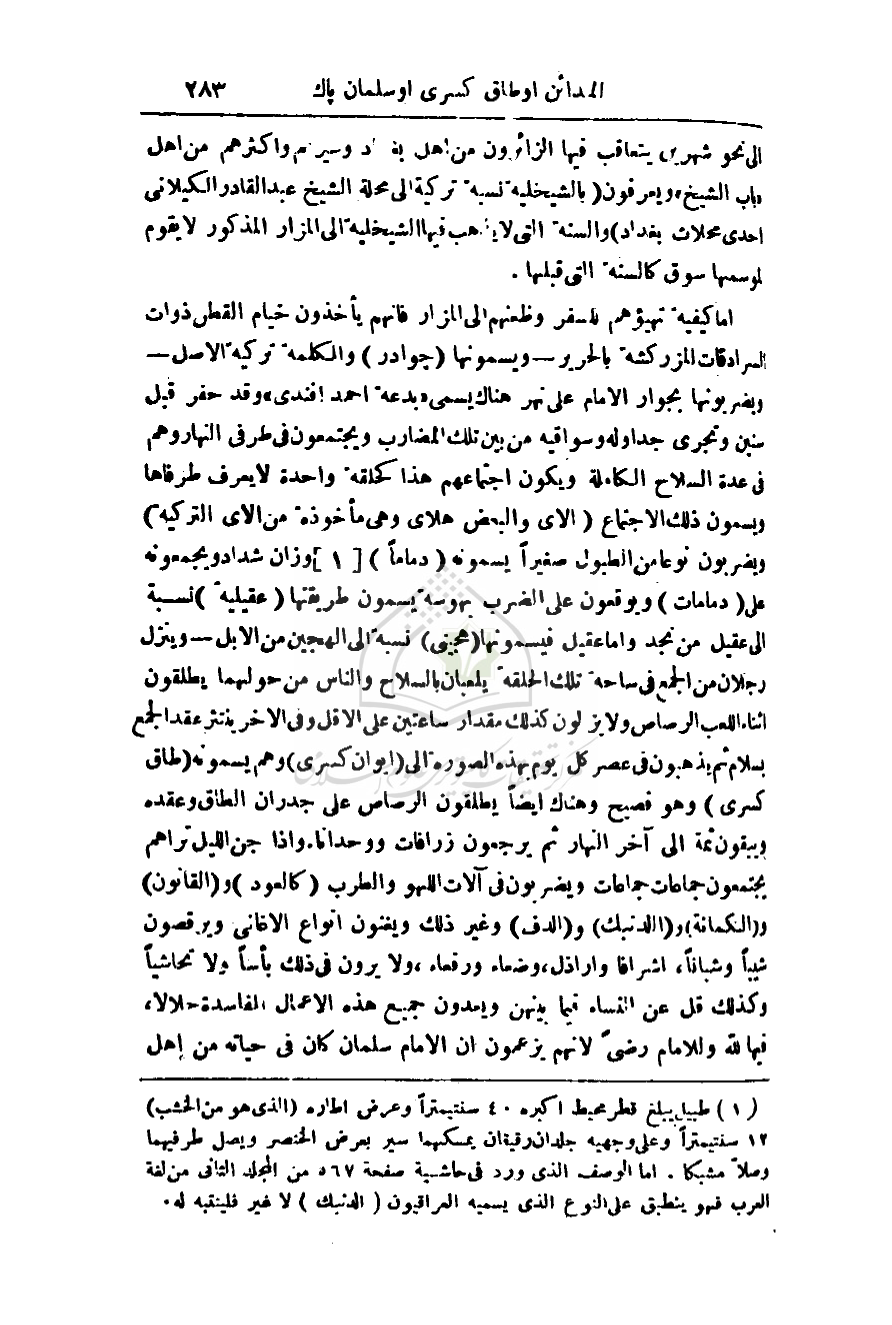 المدائن او طاق كسرى او سلمان پاك ٢٨٣
الى نحو شهرين يتعاقب فيها الزائرون من اهل بغداد وسيرهم واكثرهم من اهل
«باب الشيخ» ويعرفون ( بالشيخلية نسبة تركية الى محلة الشيخ عبد القادر الكيلاني
احدى محلات بغداد ) والسنة التى لا يذهب فيها الشيخلية الى المزار المذكور لا يقوم
لموسمها سوق كالسنة التى قبلها .
اما كيفية تهيؤهم للسفر وظعنهم الى المزار فانهم يأخذون خيام القطن ذوات
السرادقات المزركشة بالحرير — ويسمونها ( جوادر ) والكلمة تركية الاصل —
ويضربونها بجوار الامام على نهر هناك يسمى «بدعة احمد افندى» وقد حفر قبل
سنين وتجرى جداوله وسواقيه من بين تلك المضارب ويجتمعون فى طرفى النهار وهم
فى عدة السلاح الكاملة ويكون اجتماعهم هذا كحلقة واحدة لا يعرف طرفاها
ويسمون ذلك الاجتماع ( الاى والبعض هلاى وهى مأخوذة من الاى التركية )
ويضربون نوعا من الطبول صغيراً يسمونه ( دماماً ) [ ١ ] وزان شداد ويجمعونه
على ( دمامات ) ويوقعون على الضرب بهوسة يسمون طريقتها ( عقيلية ) نسبة
الى عقيل من نجد واما عقيل فيسمونها ( هجينى ) نسبة الى الهجين من الابل — وينزل
رجلان من الجمع فى ساحة تلك الحلقة يلعبان بالسلاح والناس من حولهما يطلقون
اثناء اللعب الرصاص ولا يزلون كذلك مقدار ساعتين على الاقل وفى الاخر ينتثر عقد الجمع
بسلام ثم يذهبون فى عصر كل يوم بهذه الصورة الى ( ايوان كسرى ) وهم يسمونه ( طاق
كسرى ) وهو فصيح وهناك ايضاً يطلقون الرصاص على جدران الطاق وعقده
ويبقون ثمة الى آخر النهار ثم يرجعون زرافات ووحدانا، واذا جن الليل تراهم
يجتمعون جماعات جماعات ويضربون فى آلات اللهو والطرب ( كالعود ) و ( القانون )
و ( الكمانة ) و ( الدنبك ) و ( الدف ) وغير ذلك ويغنون انواع الاغانى ويرقصون
شيباً وشباناً، اشرافا واراذل، وضعاء ورفعاء، ولا يرون فى ذلك بأساً ولا تحاشياً
وكذلك قل عن النساء فيما بينهن ويعدون جميع هذه الاعمال الفاسدة حلالا،
فيها لله وللامام رضىً لانهم يزعمون ان الامام سلمان كان فى حياته من اهل
( ١ ) طبيل يبلغ قطر محيط اكبره ٤٠ سنتيمتراً وعرض اطاره (الذى هو من الخشب)
١٢ سنتيمتراً وعلى وجهيه جلدان رقيقان يمسكهما سير بعرض الخنصر ويصل طرفيهما
وصلاً مشبكا . اما الوصف الذى ورد فى حاشية صفحة ٥٦٧ من المجلد الثانى من لغة
العرب فهو ينطبق على النوع الذى يسميه العراقيون ( الدنبك ) لا غير فلينتبه له .